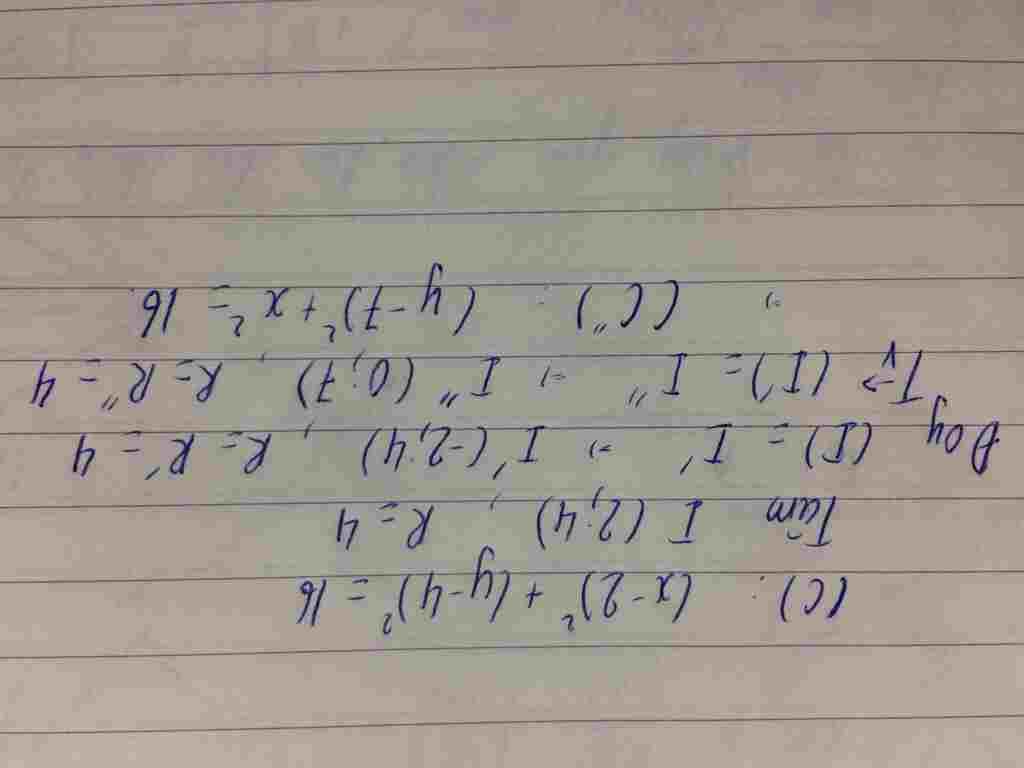 (C): (x-2)² + (y-4)² = 16
Tâm I (2;4) , R = 4
Đoy (I) = I' => I' (-2;4) , R = R' = 4
Tv→ (I') = I'' => I'' (0;7) , R = R'' = 4
=> (C'') : (y-7)² + x² = 16.